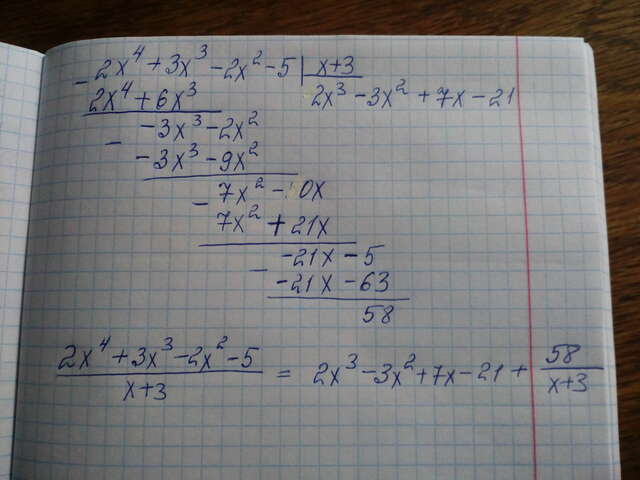 - 2x⁴ + 3x³ - 2x² - 5 | x+3
2x⁴ + 6x³ 2x³ - 3x² + 7x - 21
- -3x³ - 2x²
-3x³ - 9x²
- 7x² - 0x
7x² + 21x
- -21x - 5
-21x - 63
58
2x⁴ + 3x³ - 2x² - 5 / x+3 = 2x³ - 3x² + 7x - 21 + 58 / x+3